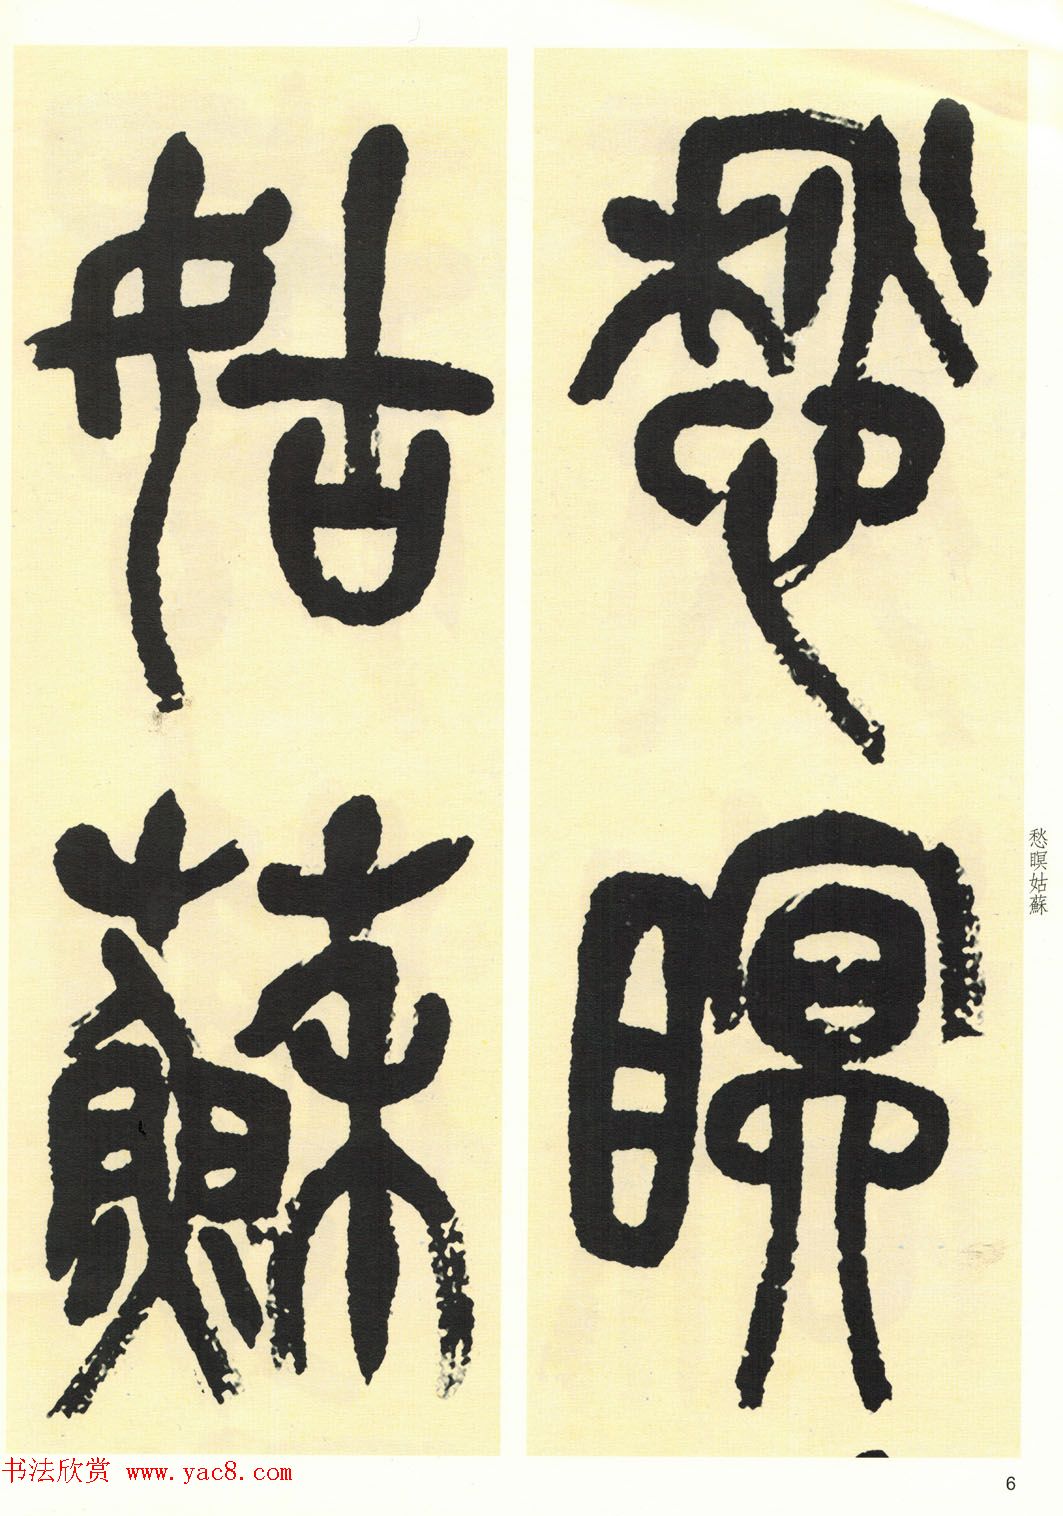 愁瞑
姑蘇
愁瞑姑蘇
书法欣赏 www.yac8.com
6